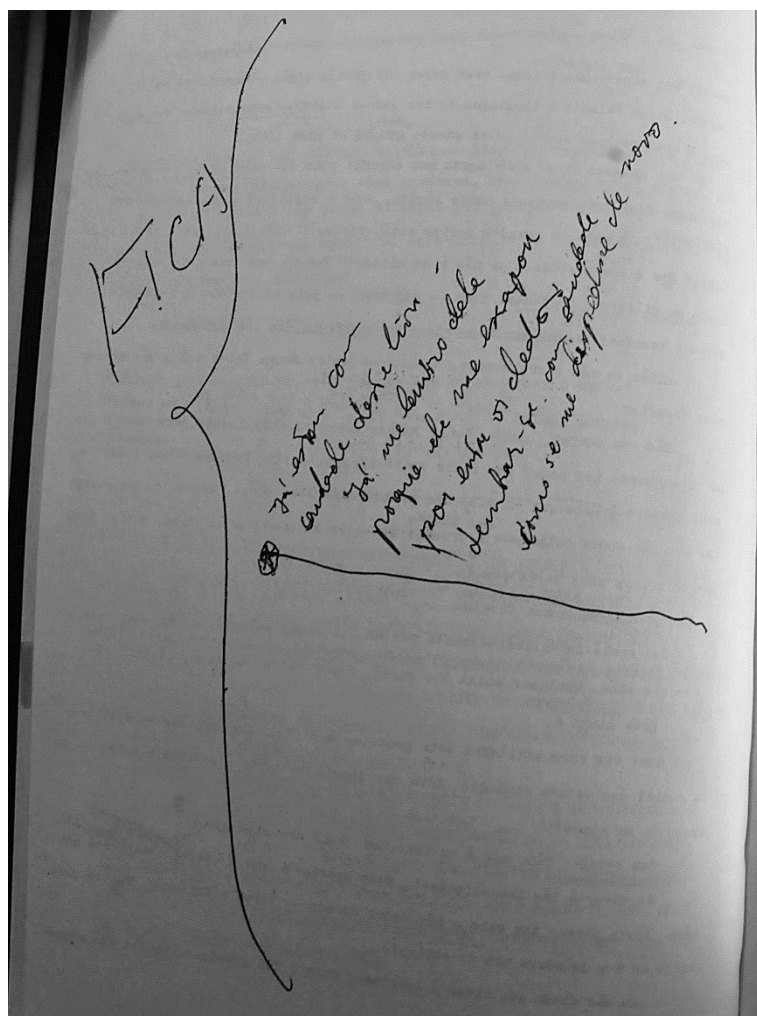 FICA
Já estou com
saudade deste livro
Já me lembro dele
porque ele me escapou
por entre os dedos
lembrar-se com saudade
como se me despedisse de novo.